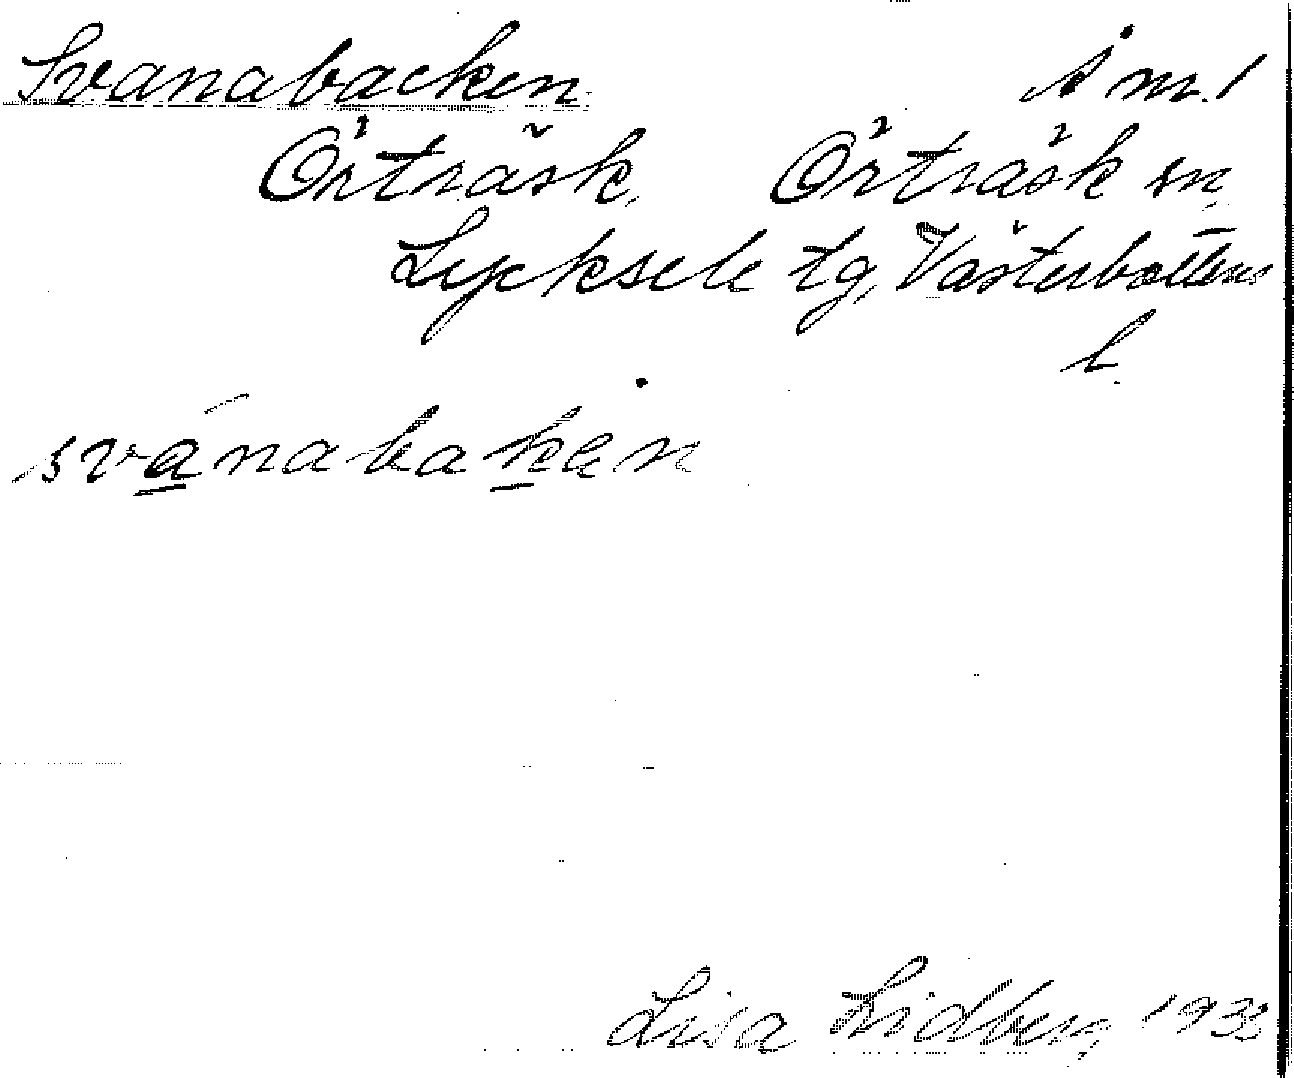 Svanabacken i m.
Örträsk, Örträsk sn,
Lycksele tg, Västerbottens
l.
svánabaken
Lisa Lidberg 1933